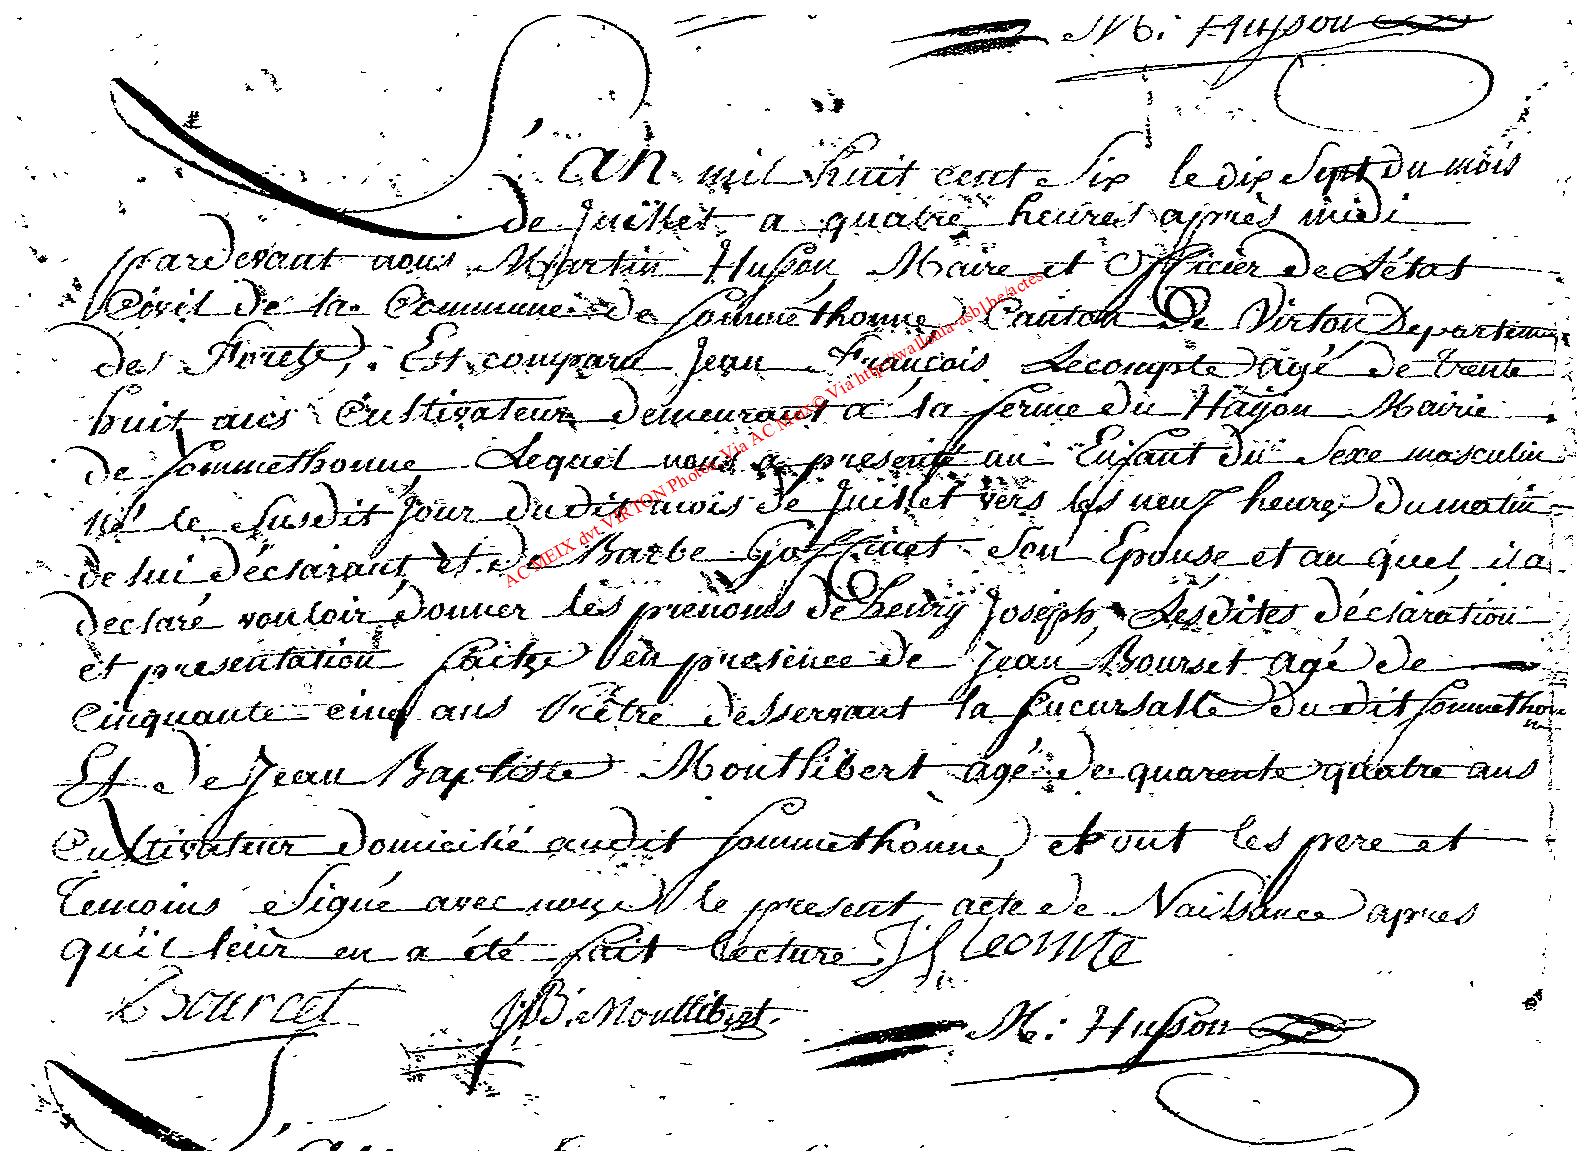 M: Husson
L'an mil huit cent Six le dix Sept du mois
de Juillet a quatre heures après midi
pardevant nous Martin Husson Maire et Officier de L'état
Civil de la Commune de Sommethonne Canton De Virton Departem
des Foretz, Est comparu Jean François Lecompte agé de trente
huit ans Cultivateur demeurant a la ferme du Hayon Mairie
de Sommethonne Lequel nous a presenté un Enfant du Sexe masculin
né le Susdit Jour dudit mois de Juillet vers les neuf heures du matin
de lui déclarant et de Barbe Goffinet Son Epouse et au quel il a
declaré vouloir donner les prenoms de henry Joseph, Lesdites déclaration
et presentation faitze en presence de Jean Bourset agé de
Cinquante cinq ans Prêtre desservant la Sucursalle du dit Sommethonne
Et de Jean Baptiste Montlibert agé de quarente quatre ans
Cultivateur domicilié audit Sommethonne, et ont les pere et
Temoins Signé avec nous le present acte de Naissance apres
qu'il leur en a été fait lecture J f Lecomte
Bourcet J.B. Montlibert. M: Husson
AC MEIX dvt VIRTON Photo: Via AC Meix © Via http://wallonia-asbl.be/actes